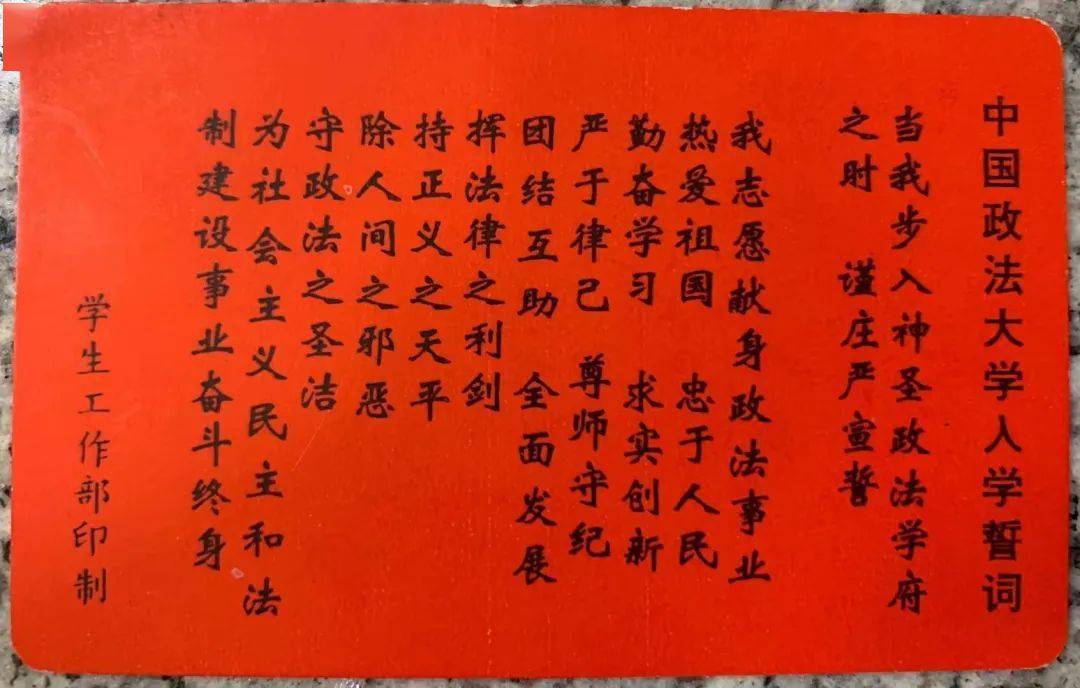 中国政法大学入学誓词
当我步入神圣政法学府
之时 谨庄严宣誓
我志愿献身政法事业
热爱祖国 忠于人民
勤奋学习 求实创新
严于律己 尊师守纪
团结互助 全面发展
挥法律之利剑
持正义之天平
除人间之邪恶
守政法之圣洁
为社会主义民主和法
制建设事业奋斗终身
学生工作部印制